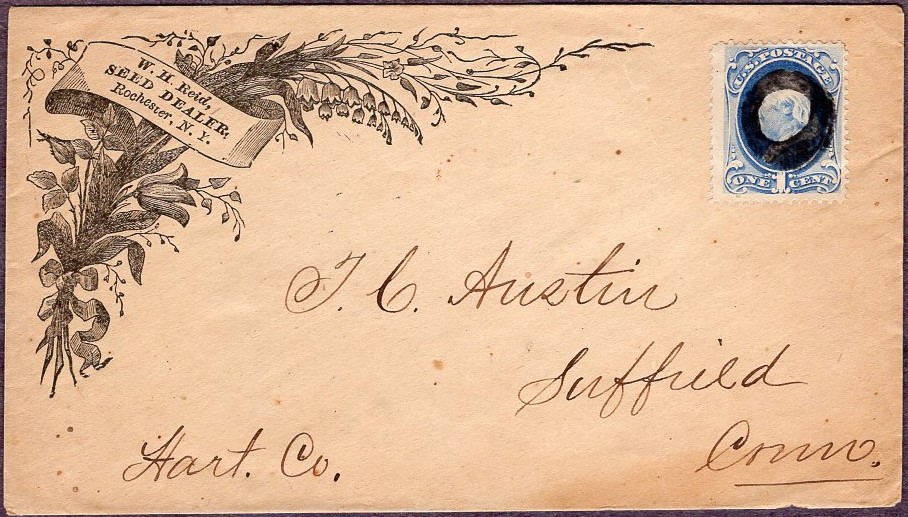 W. H. Reid,
SEED DEALER,
Rochester, N. Y.
U.S. POSTAGE
ONE 1 CENT
T. C. Austin
Suffield
Hart. Co.
Conn.